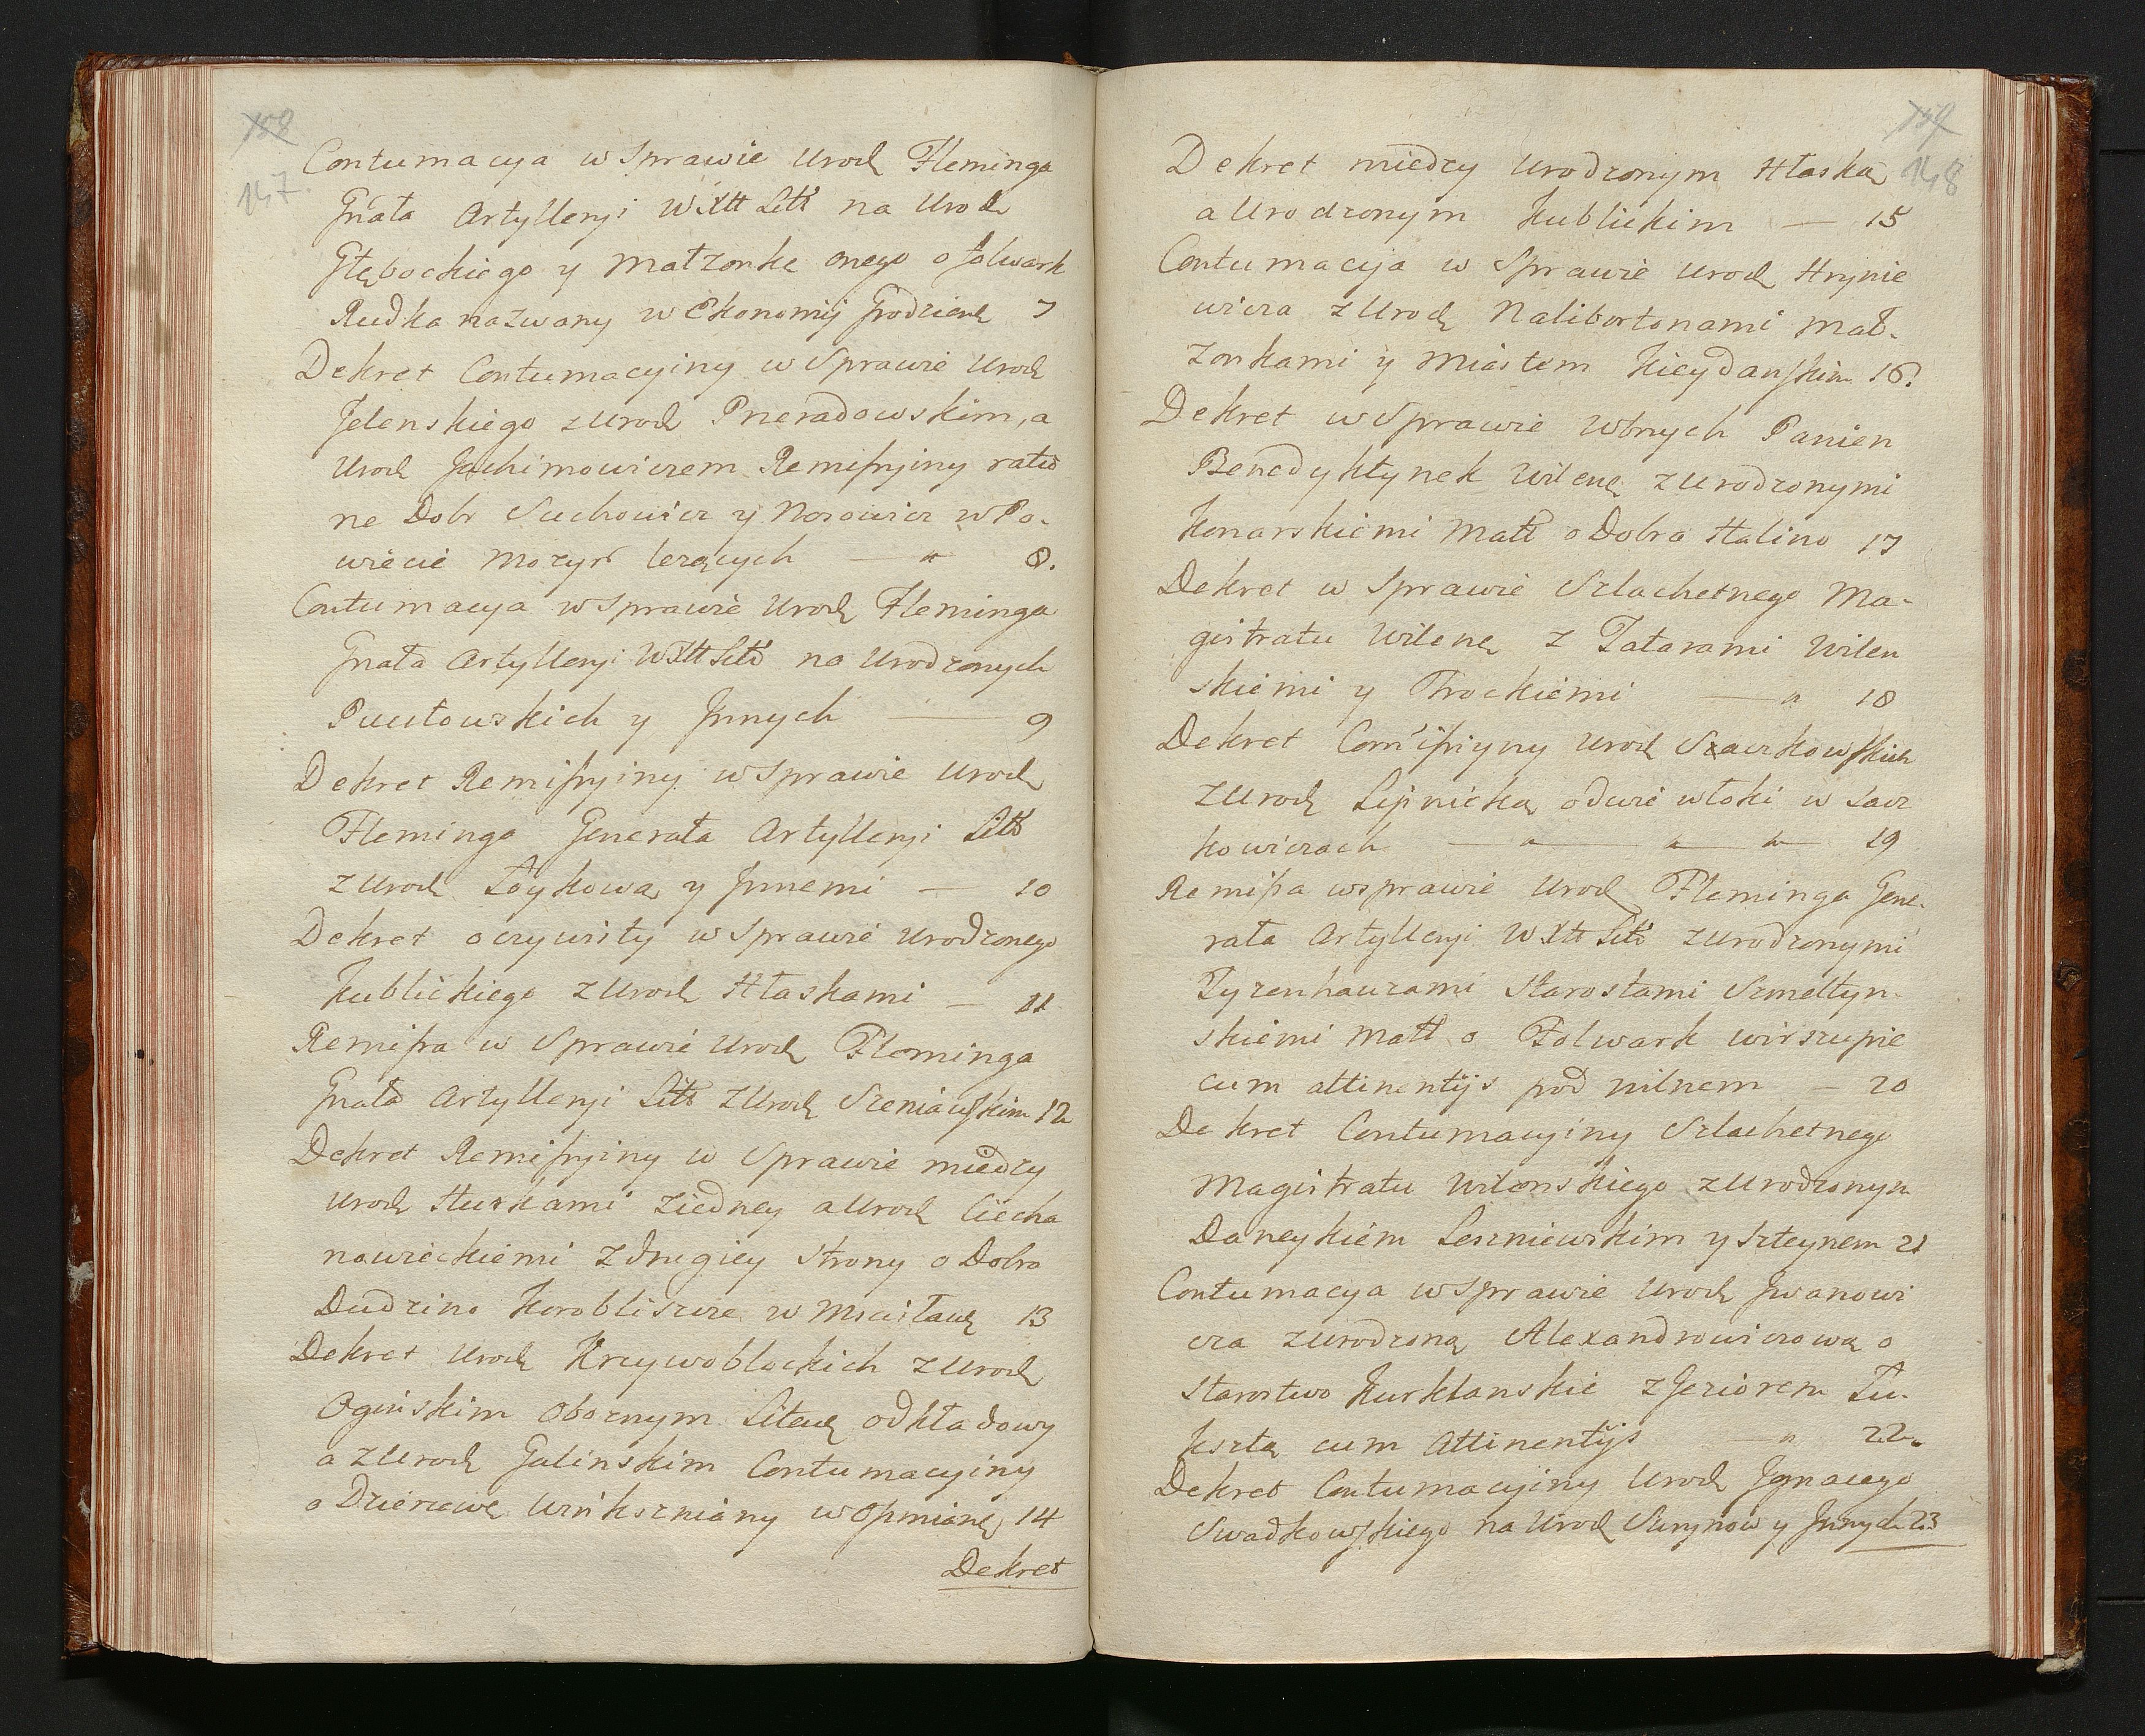 158
147.
Contumacya w Sprawie Urodz Fleminga
Gnała Artylleryi W XttLitt na Urodz
Głębockiego y Małzonkę onego o folwark
Rudka nazwany w Ekonomij Grodzien 7
Dekret Contumacyiny w Sprawie Urodz
Jelenskiego z Urodz Prieradowskim, a
Urodz Jachimowiczem Remissyiny ratio
ne Dobr Suchowicz y Norowicz w Po-
wiecie Mozyr lezących — 8.
Contumacya w Sprawie Urodz Fleminga
Gnała Artylleryi WXttLitt na Urodzonych
Puciłowskich y Jnnych — 9
Dekret Remissyiny w Sprawie Urodz
Fleminga Generała Artylleryi Litt
z Urodz Łoykową y Jnnemi — 10
Dekret oczywisty w Sprawie Urodzonego
Kublickiego z Urodz Hłaskami — 11
Remissa w Sprawie Urodz Fleminga
Gnała Artylleryi Litt z Urodz Szeniawskim 12
Dekret Remissyiny w Sprawie między
Urodz Hurkami z iedney a Urodz Ciecha
nowieckiemi z drugiey Strony o Dobra
Dudzino Korobliszcze w Mscisław 13
Dekret Urodz Krzywobłockich z Urodz
Ogińskim Oboznym Litew odkładowy
a z Urodz Galinskim Contumacyiny
o Dzierzawę Winkszniany w Oszmian 14
Dekret
159
148
Dekret miedzy Urodzonym Hłaską
a Urodzonym Kublickim — 15
Contumacya w Sprawie Urodz Hrynie
wicza z Urodz Nalibortonami Mał-
zonkami y Miastem Kieydanskim 16.
Dekret w Sprawie Wbnych Panien
Benedyktynek Wilen z Urodzonymi
Konarskiemi Małż o Dobra Halino 17
Dekret w Sprawie Szlachetnego Ma-
gistratu Wilen z Tatarami Wilen
skiemi y Trockiemi — 18
Dekret Comissyiny Urodz Szaczkowskich
z Urodz Lipnicką o dwie włoki w Sacz
kowiczach — 19
Remissa w sprawie Urodz Fleminga Gene-
rała Artylleryi W XttLitt z Urodzonymi
Tyzenhauzami Starostami Szmeltyn-
skiemi Małż o Folwark Wirszupie
cum attinentijs pod Wilnem — 20
Dekret Contumacyiny Szlachetnego
Magistratu Wilenskiego z Urodzonym
Daneykiem Leszniewskim y Szteynem 21
Contumacya w Sprawie Urodz Jwanowi
cza z Urodzoną Alexandrowiczową o
Starostwo Kurklanskie z Jeziorem Łu-
kszta cum Attinentijs 22.
Dekret Contumacyiny Urodz Jgnacego
Swadkowskiego na Urodz Surynow y Jnnych 23